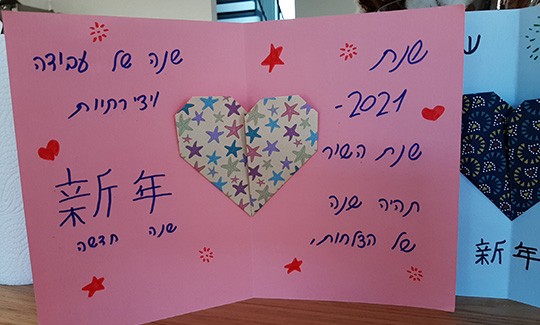 שנת
2021-
שנת השור
תהיה שנה
של הצלחות,
שנה של עבודה
ויצירתיות
新年
שנה חדשה
新年